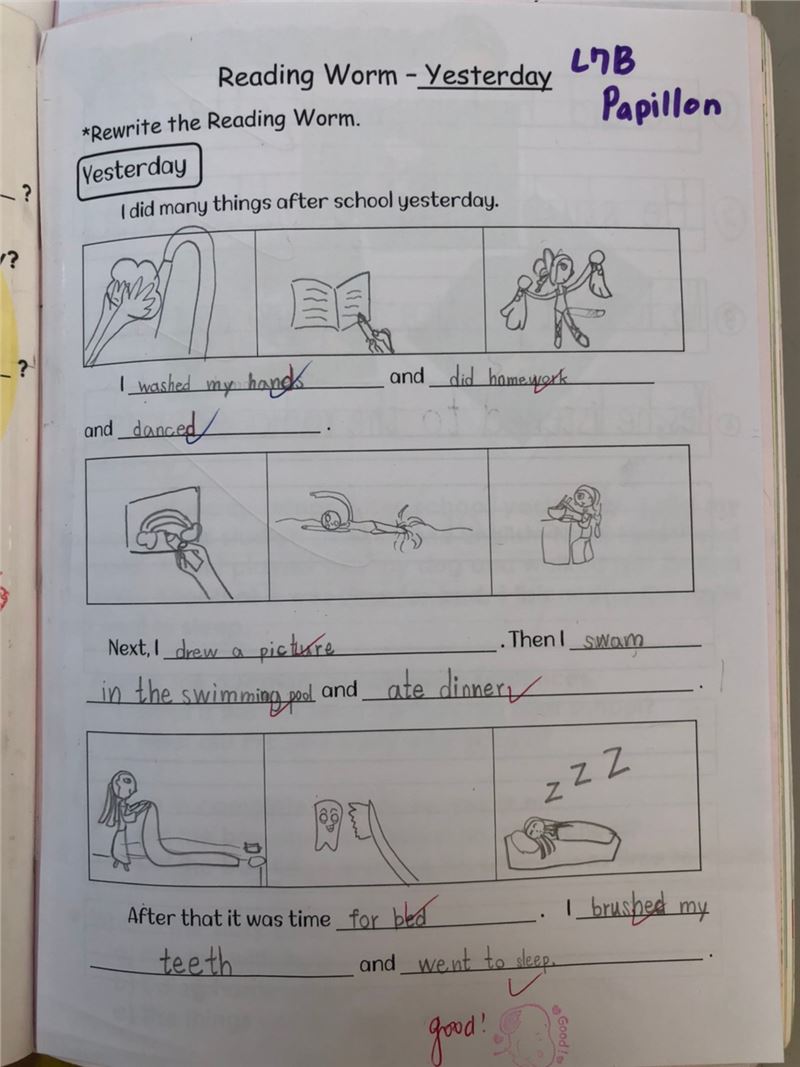 Reading Worm - Yesterday
L7B
Papillon
*Rewrite the Reading Worm.
Yesterday
I did many things after school yesterday.
I washed my hands and did homework
and danced .
Next, I drew a picture . Then I swam
in the swimming pool and ate dinner .
Z Z Z
After that it was time for bed . I brushed my
teeth and went to sleep. .
good!
Good!